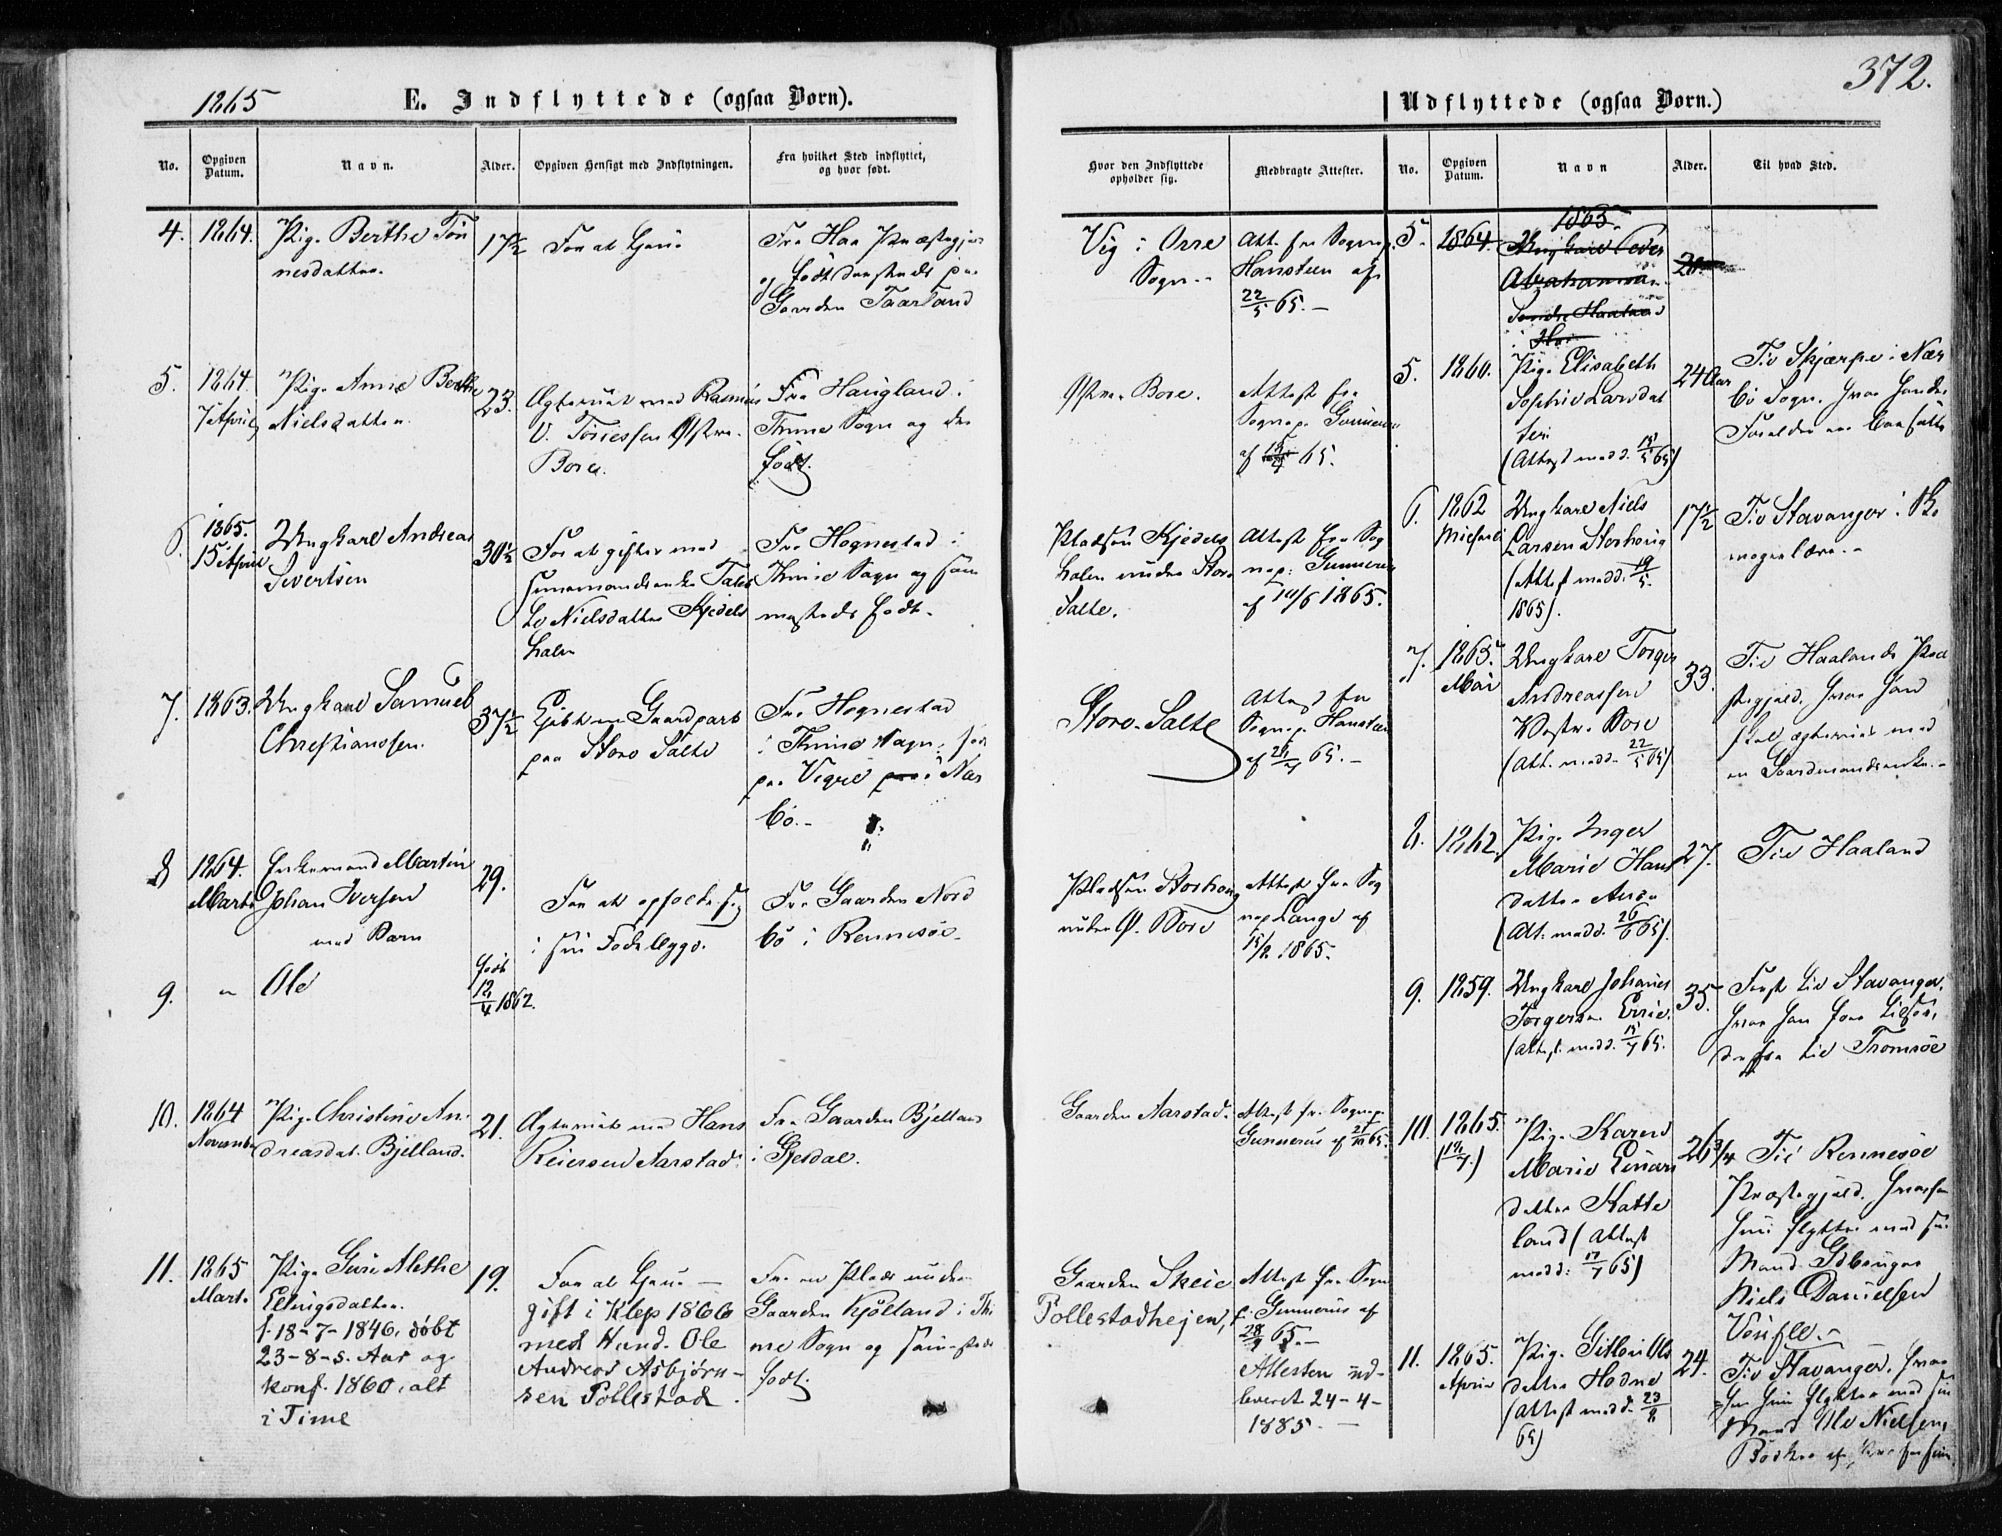 372.
1865 E. Indflyttede (ogsaa Børn).
No. Opgiven Datum. Navn. Alder. Opgiven Hensigt med Indflytningen. Fra hvilket Sted indflyttet, og hvor født.
Hvor den Indflyttede opholder sig. Medbragte Attester.
4. 1864. Pige Berthe Tønnesdatter. 17½ For at tjene Fra Haa Præstegjæld og født sammesteds paa Gaarden Taarland
Vig i Orre Sogn. Att. fra Sognep. Hansteen af 22/5 65.
5. 1864. 7 April Pige Anne Berthe Nielsdatter. 23. Ægteviet med Rasmus V. Tøriessen Østre Bore. Fra Haugland i Thime Sogn og der født.
Østre Bore. Attest fra Sognep. Gunnerus af 65.
6. 1865. 15 April Ungkarl Andreas Sivertsen 30½ For at gifte med Nielsdatter Kjedels halen Fra Hognestad i Thime Sogn og sammesteds født.
Pladsen Kjedelshalen under Store Salte. Attest fra Sognep. Gunnerus af 14/6 1865.
7. 1863. Ungkarl Samuel Christianssen. 37½ Kjøbt en Gaardpart paa Store Salte Fra Hognestad i Thime Sogn, født paa Vigre i Nærbø.
Store Salte Attest fra Sognep. Hansteen af 65.
8 1864. Marts Enkemand Martin Johan Iversen med Barn 29. For at opholde sig i sin Fødebygd. Fra Gaarden Nordbø i Rennesøe
Pladsen Storhoug under Ø. Bore Attest fra Sognep Lange af 15/2 1865.
9. " Ole født 12/4 1862.
10. 1864 November Pige Christine Andreasdat. Bjelland. 21. Ægteviet med Hans Reiersen Aarstad. Fra Gaarden Bjelland i Gjesdal.
Gaarden Aarstad. Attest fr. Sognep. Gunnerus af 65.
11. 1865 Marts Pige Guri Alethe Ellingsdatter. 19. For at tjene
f. 18-7-1846, døbt 23-8-s. Aar og konf. 1860, alt i Time
gift i Klep 1866 med Andreas Asbjørnsen Pollestad.
Fra en Plads under Gaarden Kjølland i Thime Sogn og sammesteds født.
Gaarden Skeie Pollestadheien, Attest fra Sognep. Gunnerus af 65.
Attesten udleveret 24-4-1885.
Udflyttede (ogsaa Børn.)
No. Opgiven Datum. Navn Alder. Til hvad Sted.
1865.
5. 1864. Ungkarl Peder Abrahamsen Søndre Haaland i Hoi
5. 1860. Pige Elisabeth Sophie Larsdatter (Attest medd. 15/5 65) 24 Aar Til Skjærpe i Nærbø Sogn, hvor hendes Forældre ere bosatte
6. 1862 Ungkarl Niels Larsen Storhoug (Attest medd. 19/5 1865). 17½ Til Stavanger i
7. 1863. Mai Ungkarl Torger Andreassen Vestre Bore (Att. medd. 22/5 65). 33. Til Haalands Præstegjæld, hvor han skal ægtevies med en Gaardmandsenke.
8. 1862. Pige Inger Marie Hansdatter Anda (Att. medd. 26/6 65). 27. Til Haaland
9. 1859. Ungkarl Johannes Torgersen Erøie (Attest. medd. 15/7 65. 35. Først til Stavanger, hvor han for tilsøes, derfra til Tromsøe
10. 1865. Pige Karen Marie Einarsdatter Katteland (Attest medd. 17/7 65) 26¾ Til Rennesøe Præstegjæld, hvorhen hun flytter med sin Mand Niels Danielsen
11. 1865. April Pige Gitlei Olsdatter Hodne (Attest medd. 23/8 65) 24. Til Stavanger, hvor hun flytter med sin Mand Ole Nielsen, Bødker af